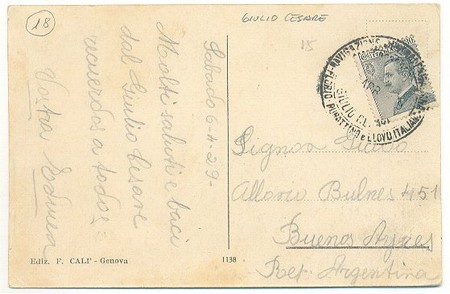 18
GIULIO CESARE
15
Sabato 6-4-29-
Molti saluti e baci
dal Giulio Cesare
recuerdos a todos-
Vostra
NAVIGAZIONE
FLORIO-RUBATTINO e LLOYD ITALIANO
Signor
Allaria Bulnes 451
Buenos Ayres
Rep. Argentina
Ediz. F. CALI' - Genova
1138